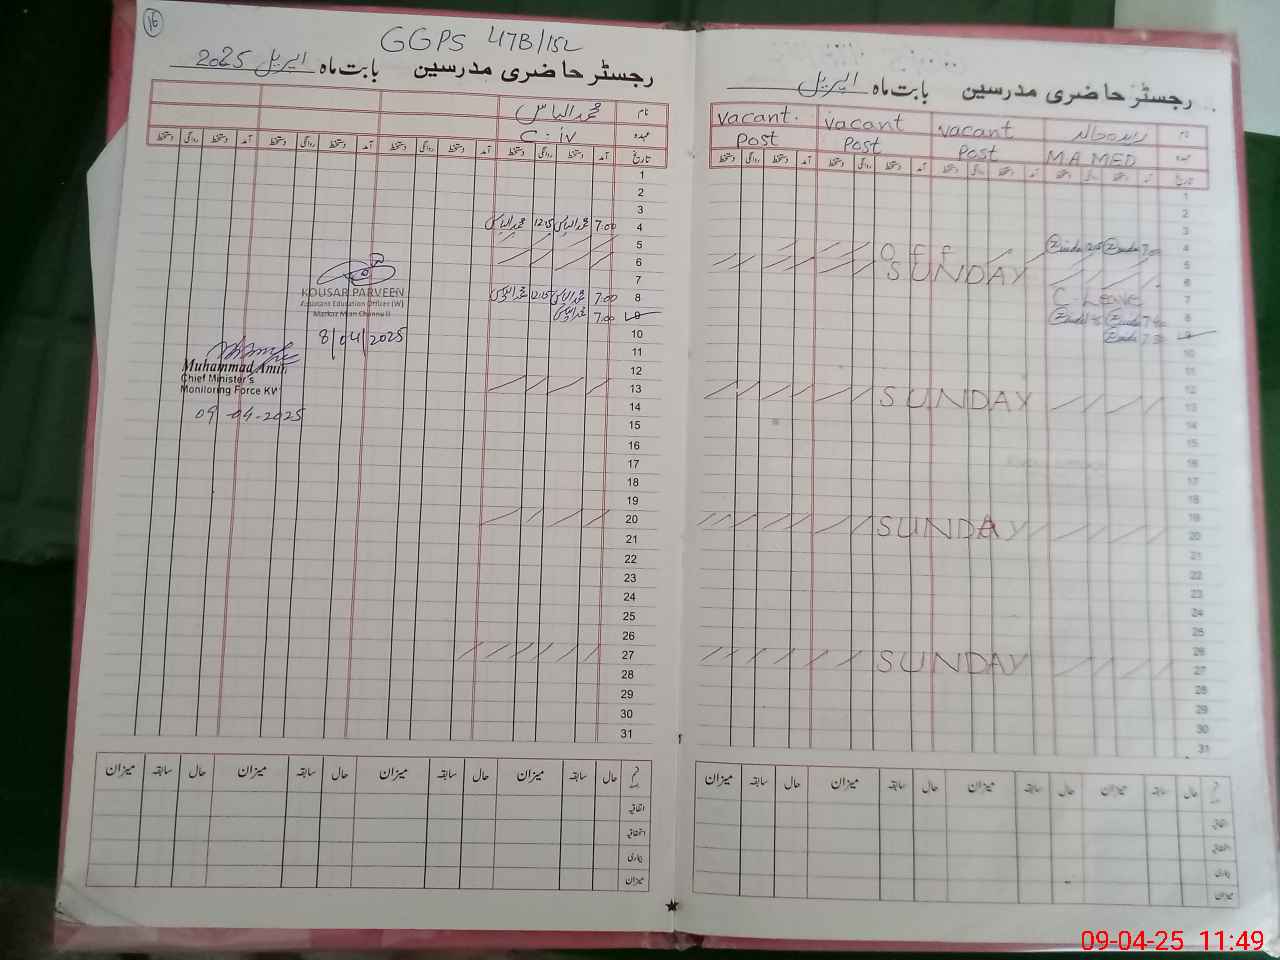 16
GGPS 47B/15L
رجسٹر حاضری مدرسین بابت ماہ اپریل 2025
نام محمد الیاس
عہدہ C-iv
تاریخ آمد دستخط روانگی دستخط آمد دستخط روانگی دستخط آمد دستخط روانگی دستخط آمد دستخط روانگی دستخط
1
2
3
4 7.00 محمد الیاس 12.15 محمد الیاس
5
6
7
8 7.00 محمد الیاس 12.15 محمد الیاس
9 7.00 محمد الیاس
10
11
12
13
14
15
16
17
18
19
20
21
22
23
24
25
26
27
28
29
30
31
KOUSAR PARVEEN
Assistant Education Officer (W)
Markaz Mian Channu II
8/04/2025
Muhammad Amin
Chief Minister's
Monitoring Force KV
09-04-2025
حال سابقہ میزان حال سابقہ میزان حال سابقہ میزان حال سابقہ میزان
اتفاقیہ
استحقاقیہ
بیماری
میزان
رجسٹر حاضری مدرسین بابت ماہ اپریل
نام vacant vacant vacant.
عہدہ M.A MED Post Post Post
تاریخ آمد دستخط روانگی دستخط آمد دستخط روانگی دستخط آمد دستخط روانگی دستخط آمد دستخط روانگی دستخط
1
2
3
4 7.00
5 OFF
6 SUNDAY
7 C Leave
8
9
10
11
12
13 SUNDAY
14
15
16
17
18
19
20 SUNDAY
21
22
23
24
25
26
27 SUNDAY
28
29
30
31
حال سابقہ میزان حال سابقہ میزان حال سابقہ میزان حال سابقہ میزان
اتفاقیہ
استحقاقیہ
بیماری
میزان
09-04-25 11:49